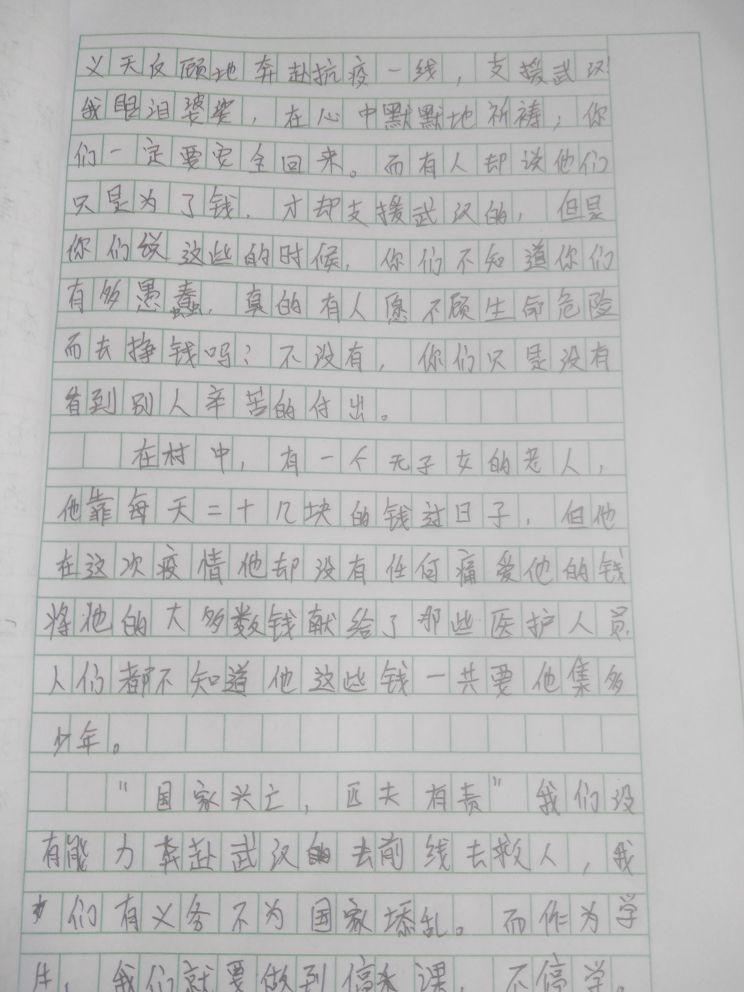 义无反顾地奔赴抗疫一线，支援武汉!
我眼泪婆娑，在心中默默地祈祷，你
们一定要安全回来。而有人却说他们
只是为了钱，才却支援武汉的，但是
你们说这些的时候，你们不知道你们
有多愚蠢，真的有人愿不顾生命危险
而去挣钱吗？不没有，你们只是没有
看到别人辛苦的付出。
在村中，有一个无子女的老人，
他靠每天二十几块的钱过日子，但他
在这次疫情他却没有任何痛爱他的钱
将他的大多数钱献给了那些医护人员
人们都不知道他这些钱一共要他集多
少年。
“国家兴亡，匹夫有责”我们没
有能力奔赴武汉的去前线去救人，我
们有义务不为国家添乱。而作为学
生，我们就要做到停课，不停学。